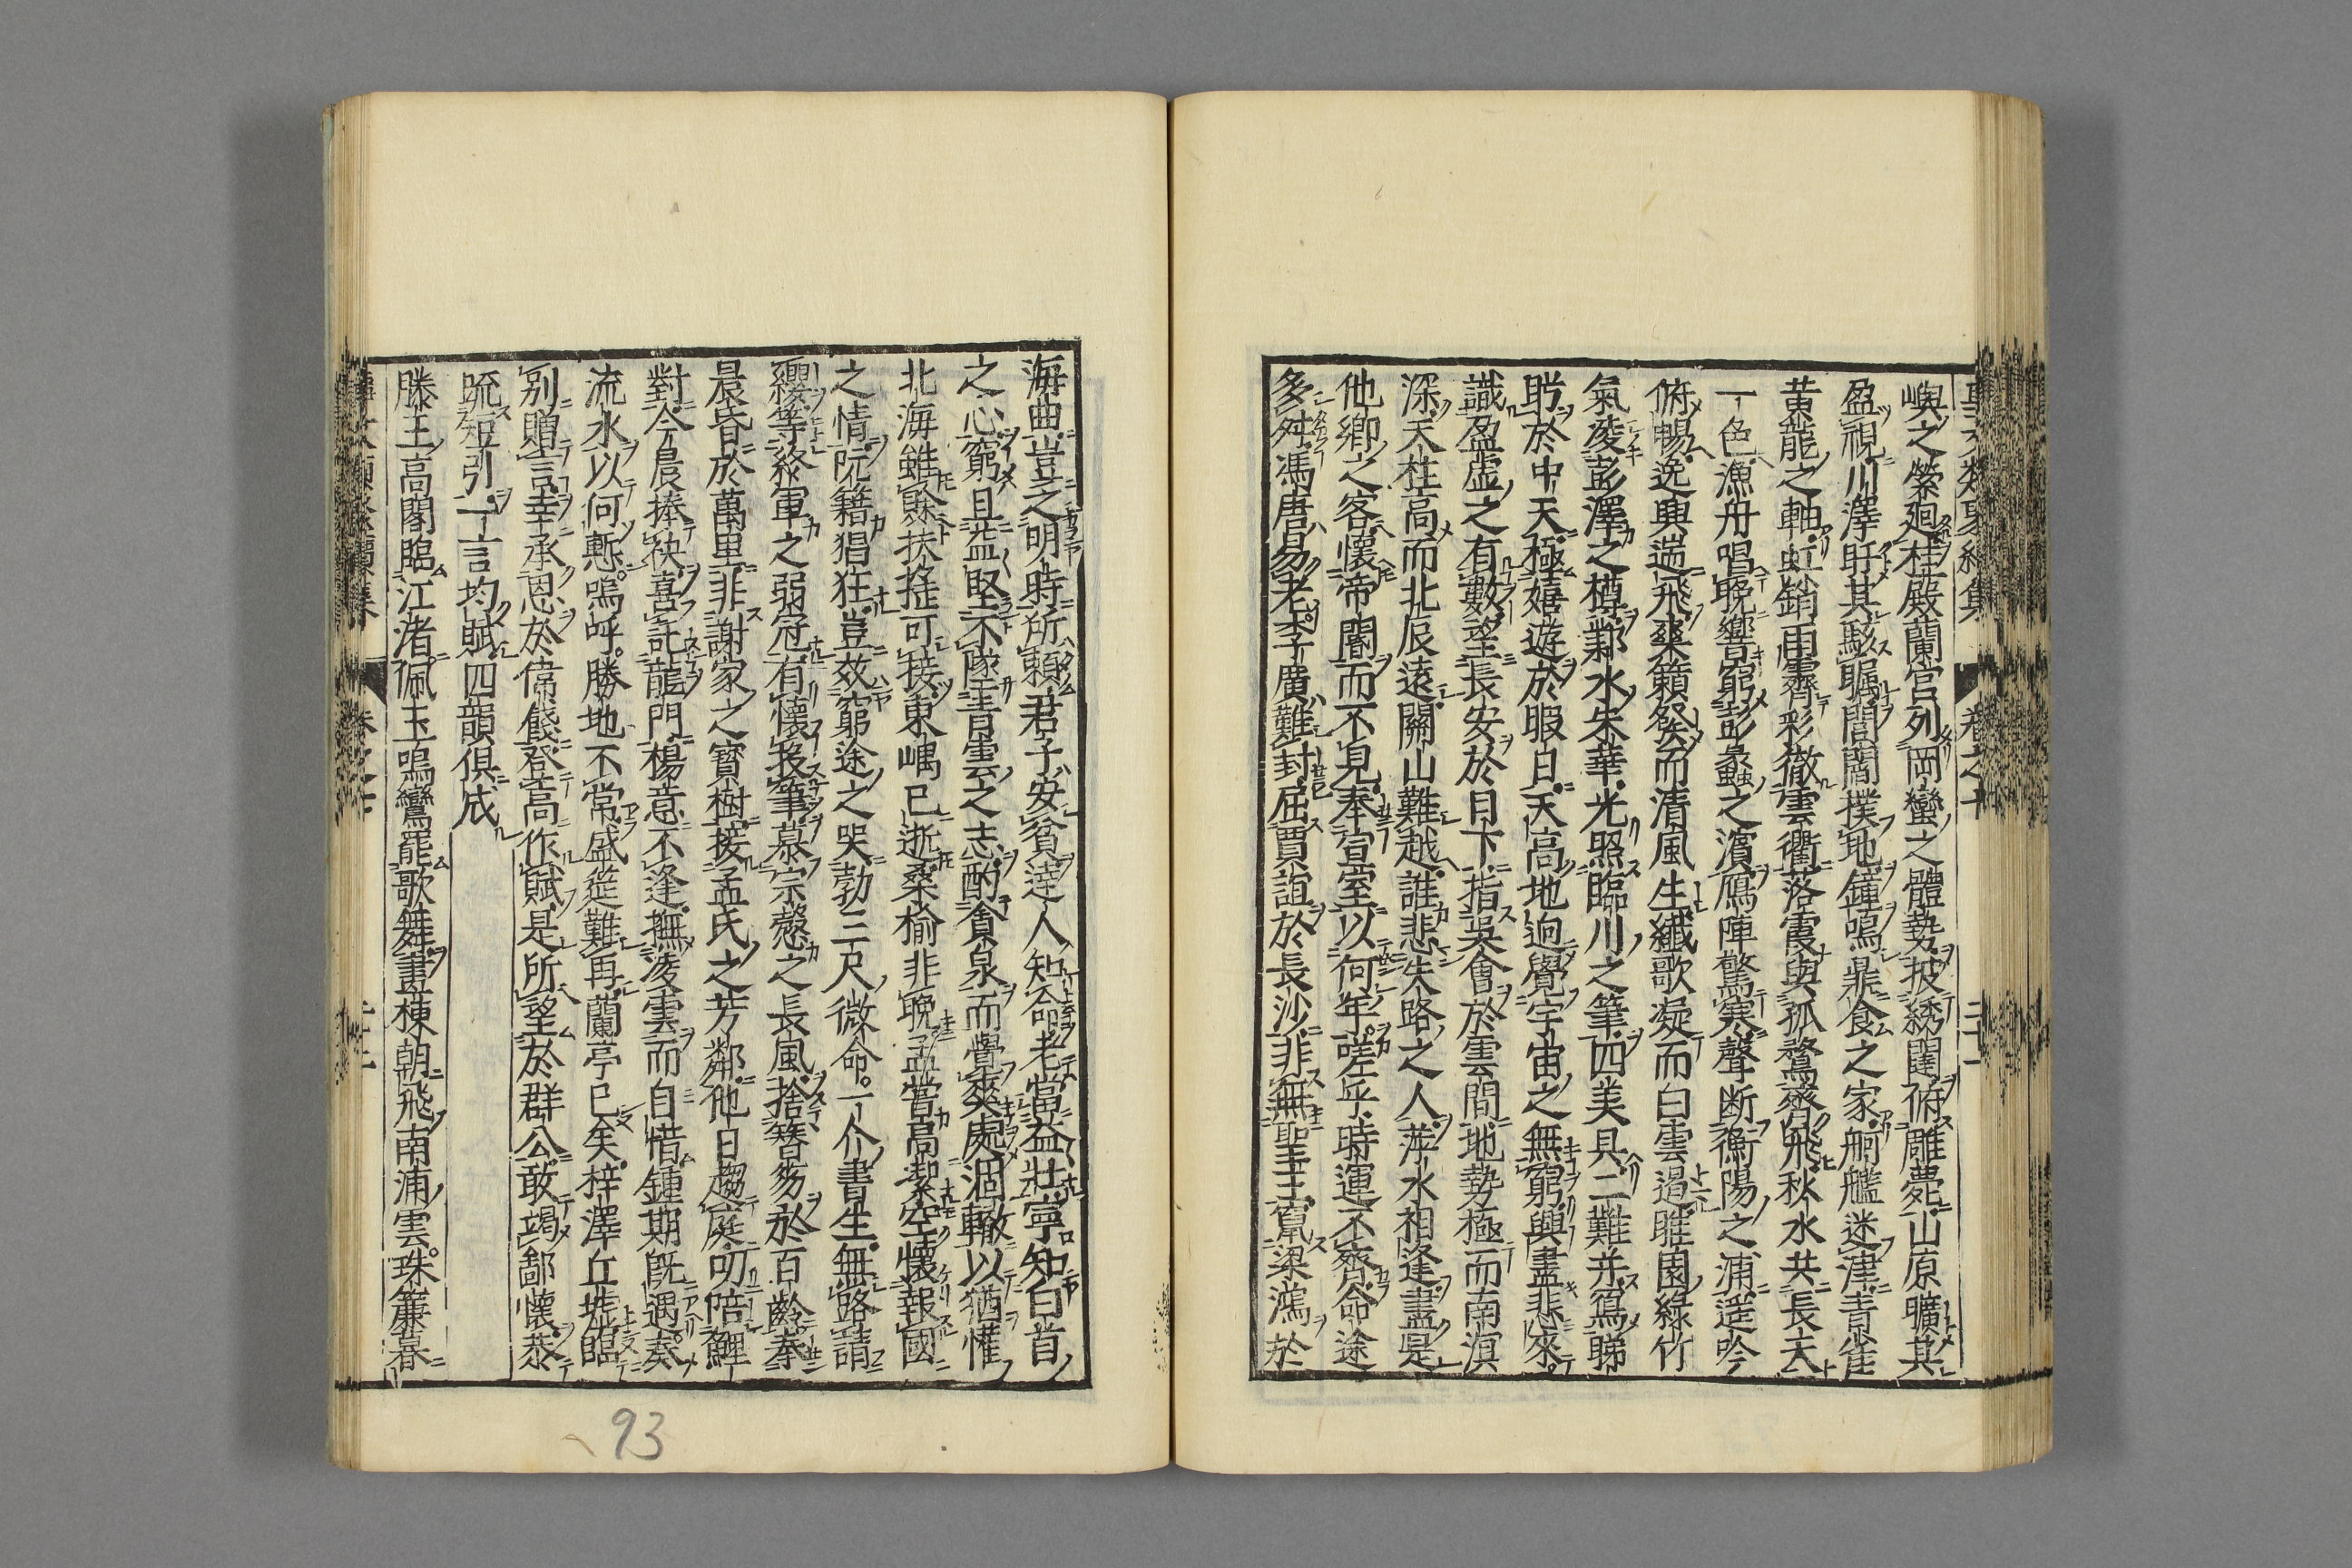 嶼之縈廻桂殿蘭宮列岡巒之體勢披綉闥俯雕甍山原曠其
盈視川澤盱其駭矚閭閻撲地鐘鳴鼎食之家舸艦迷津青雀
黄龍之軸虹銷雨霽彩徹雲衢落霞與孤鶩齊飛秋水共長天
一色漁舟唱晩響窮彭蠡之濱鴈陣驚寒聲断衡陽之浦遥吟
俯暢逸興遄飛爽籟發而清風生纖歌凝而白雲遏睢園綠竹
氣凌彭澤之樽鄴水朱華光照臨川之筆四美具二難并窮睇
眄於中天極嬉遊於暇日天高地逈覺宇宙之無窮興盡悲來
識盈虚之有數望長安於日下指吳會於雲間地勢極而南溟
深天柱高而北辰遠關山難越誰悲失路之人萍水相逢盡是
他郷之客懷帝閽而不見奉宣室以何年嗟乎時運不齊命途
多舛馮唐易老李廣難封屈賈誼於長沙非無聖主竄梁鴻於
卷之十
海曲豈乏明時所賴君子安貧達人知命老當益壯寧知白首
之心窮且益堅不墜青雲之志酌貪泉而覺爽處涸轍以猶懽
北海雖賖扶揺可接東嵎已逝桑榆非晩孟嘗高潔空懷報國
之情阮籍猖狂豈效窮途之哭勃三尺微命一介書生無路請
纓等終軍之弱冠有懷投筆慕宗愨之長風捨簪笏於百齡奉
晨昏於萬里非謝家之寶樹接孟氏之芳鄰他日趨庭叨陪鯉
對今晨捧袂喜託龍門楊意不逢撫凌雲而自惜鍾期旣遇奏
流水以何慙嗚呼勝地不常盛筵難再蘭亭已矣梓澤丘墟臨
别贈言幸承恩於偉餞登高作賦是所望於群公敢竭鄙懷恭
䟽短引一言均賦四韻俱成
滕王高閣臨江渚佩玉鳴鸞罷歌舞畫棟朝飛南浦雲珠簾暮
93